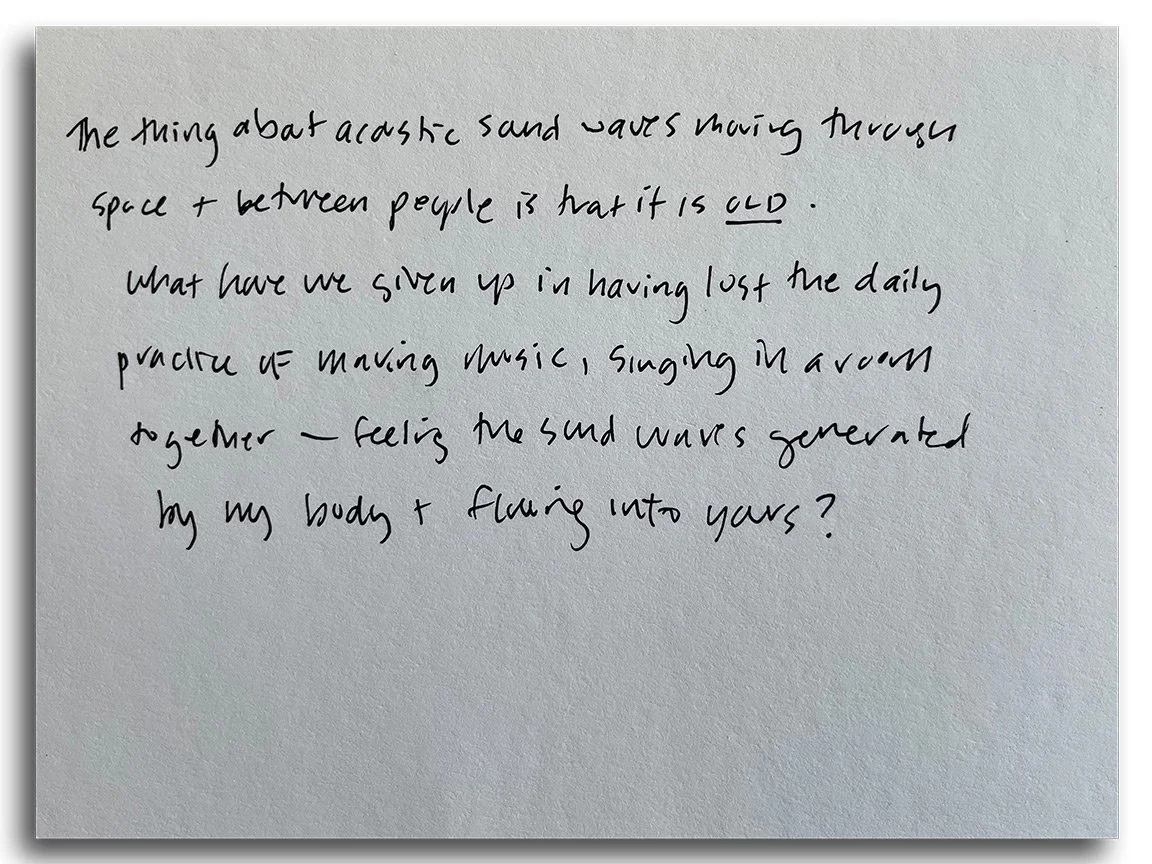 The thing about acoustic sound waves moving through
space + between people is that it is OLD.
What have we given up in having lost the daily
practice of making music, singing in a room
together — feeling the sound waves generated
by my body + flowing into yours?